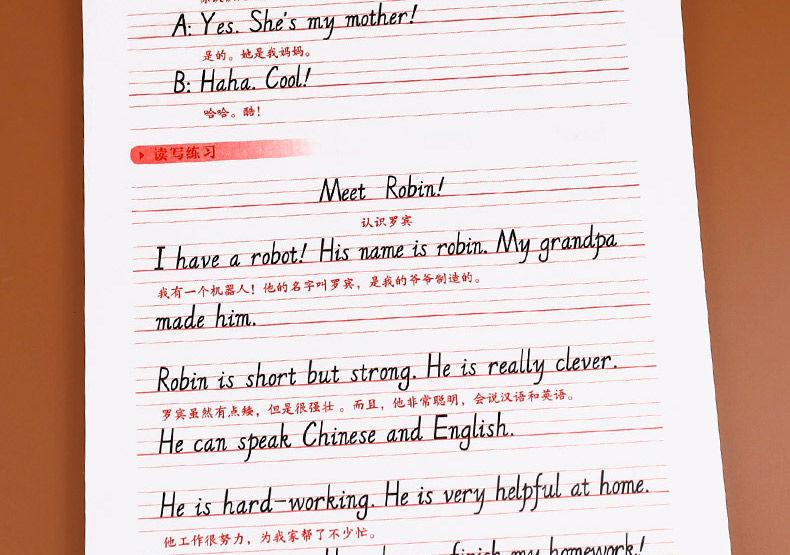 A: Yes. She's my mother!
是的。她是我妈妈。
B: Haha. Cool!
哈哈。酷！
读写练习
Meet Robin!
认识罗宾
I have a robot! His name is robin. My grandpa
我有一个机器人！他的名字叫罗宾，是我的爷爷制造的。
made him.
Robin is short but strong. He is really clever.
罗宾虽然有点矮，但是很强壮。而且，他非常聪明，会说汉语和英语。
He can speak Chinese and English.
He is hard-working. He is very helpful at home.
他工作很努力，为我家帮了不少忙。
finish my homework!